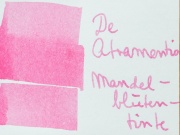 De
Atramentis
Mandel-
blüten-
tinte